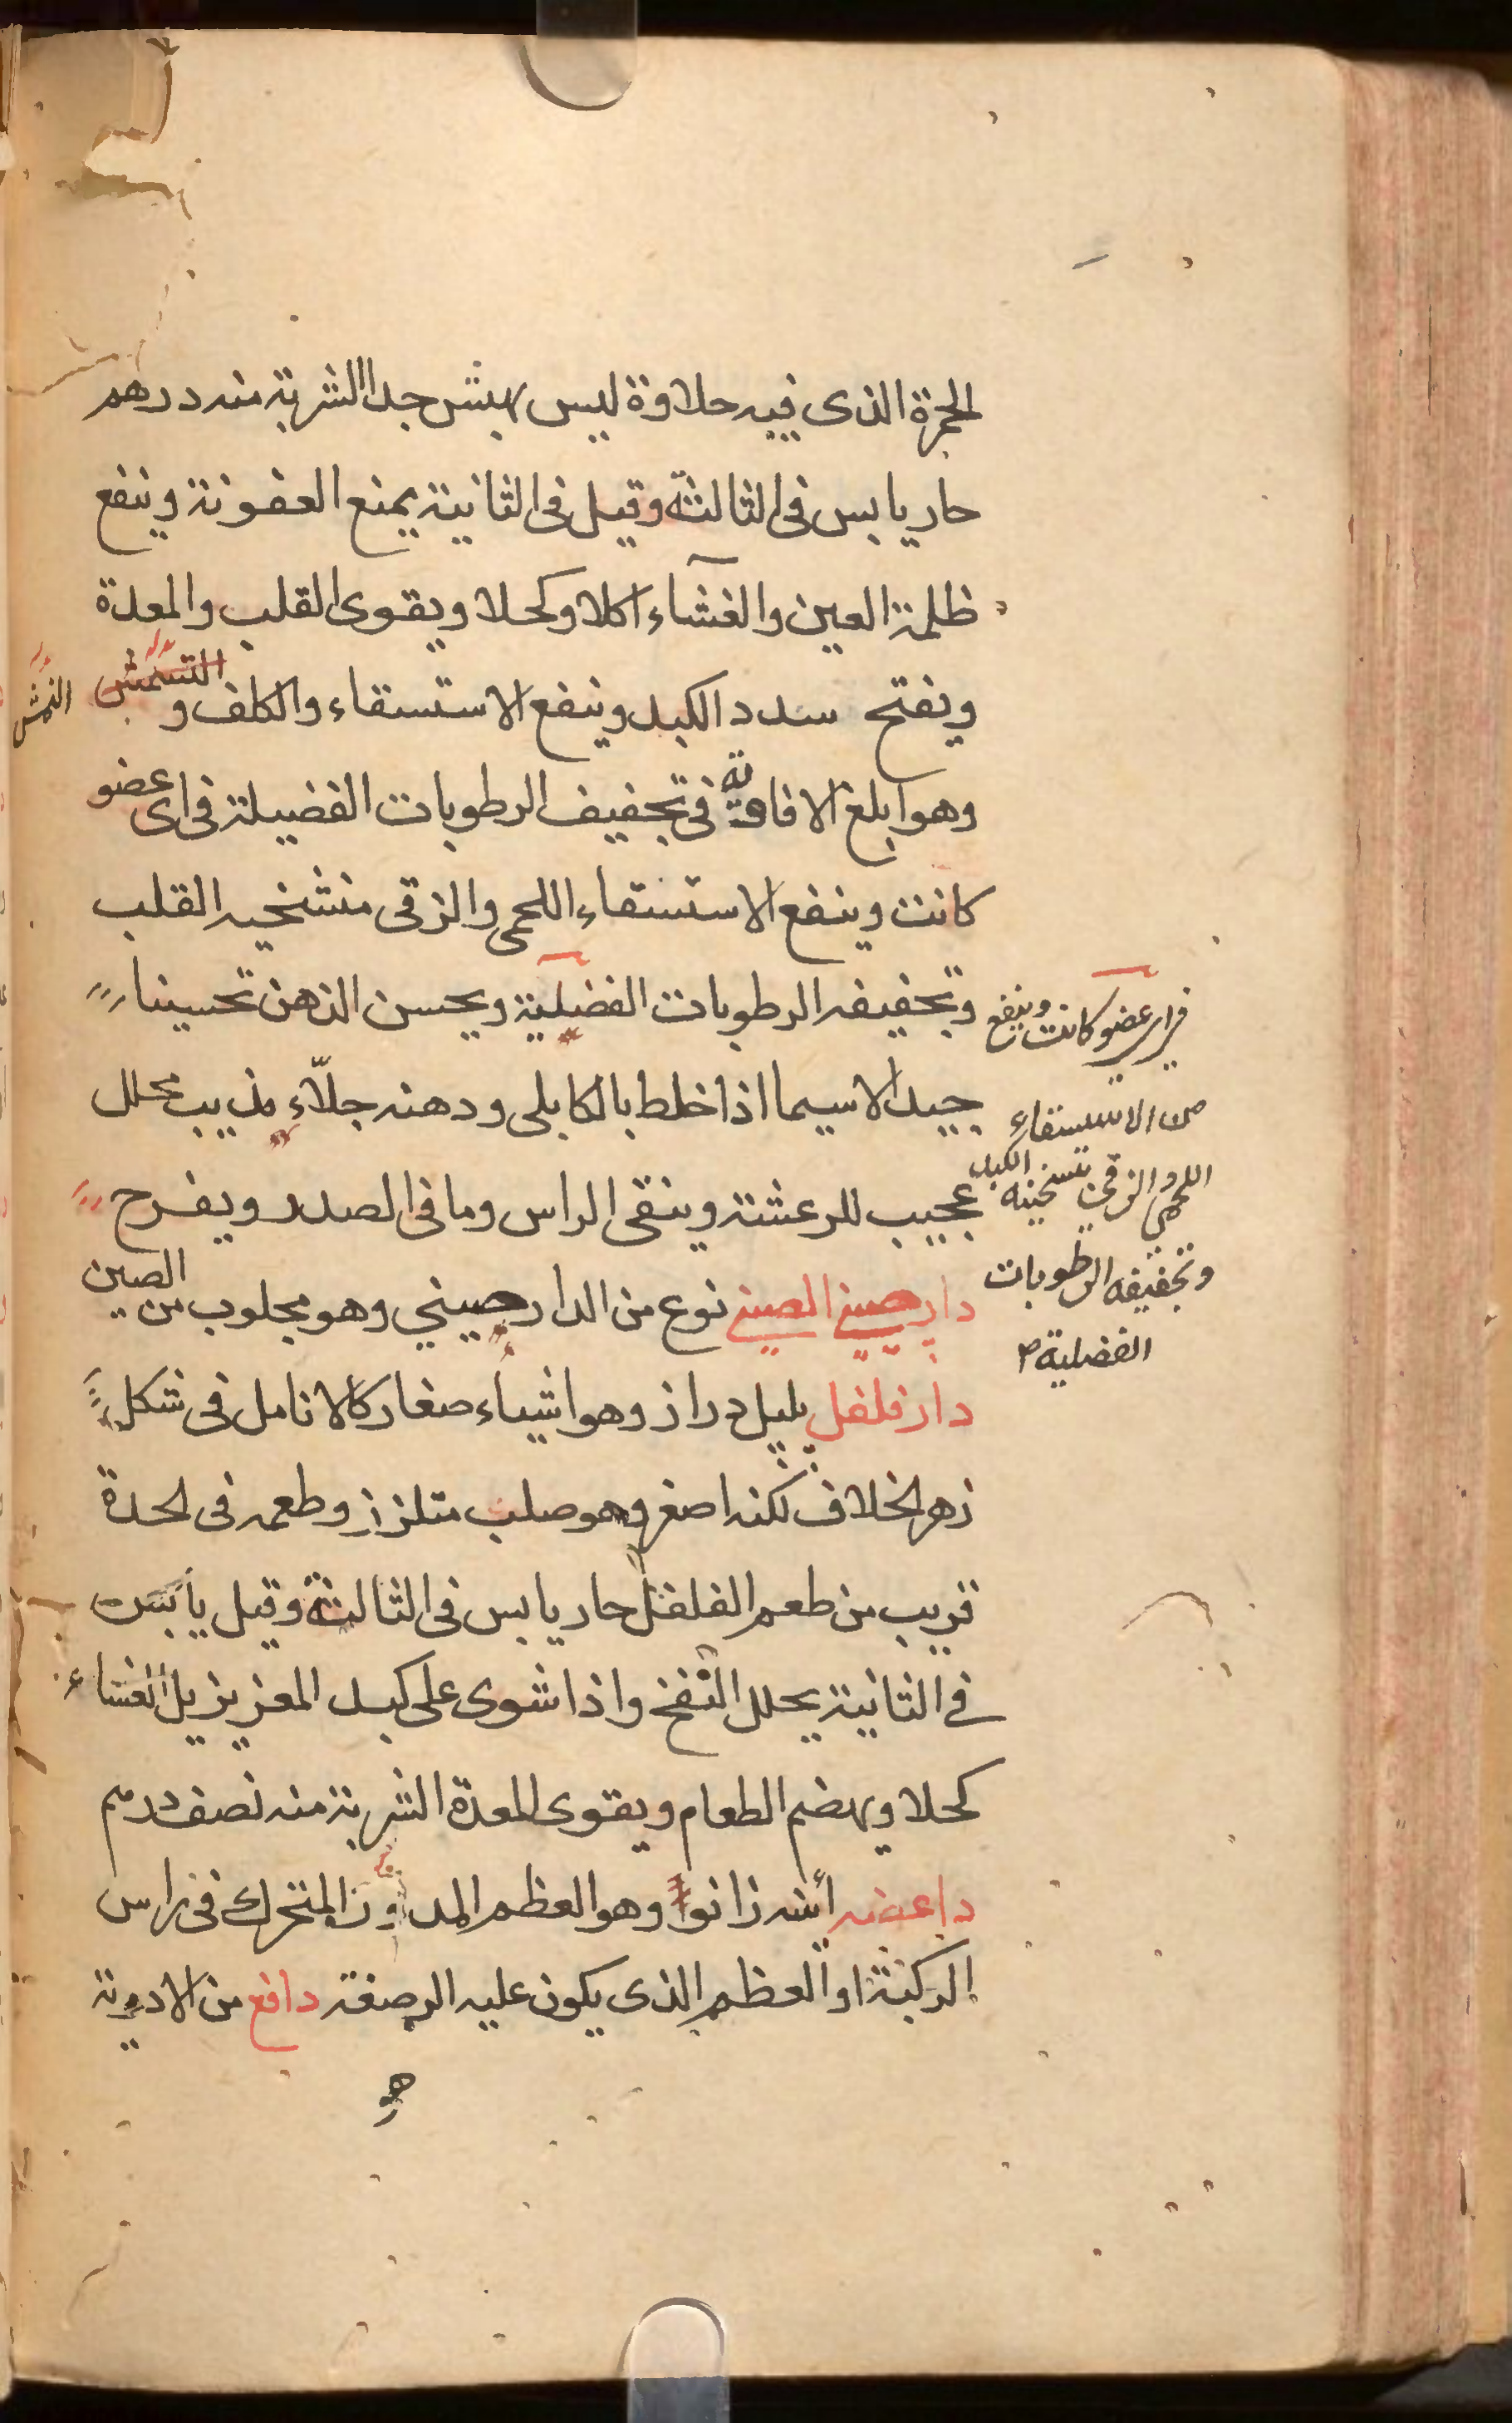 الحمرة الذى فيه حلاوة ليس بهش جدا الشربة منه درهم
حار يابس فى الثالثة وقيل فى الثانية يمنع العفونة وينفع
ظلمة العين والغشاء اكلا وكحلا ويقوى القلب والمعدة
ويفتح سدد الكبد وينفع الاستسقاء والكلف و
النمش
وهو ابلغ الافاوية فى تجفيف الرطوبات الفضيلة فى اى عضو
كانت وينفع الاستسقاء اللحمى والزقى القلب
وتجفيفه الرطوبات الفضلية ويحسن الذهن تحسينا
جيدا لاسيما اذا خلط بالكابلى ودهنه جلّاء مذيب محلل
عجيب للرعشة وينقى الراس وما فى الصدر ويفرح
دارصينى الصينى نوع من الدارصيني وهو مجلوب من الصين
دار فلفل پلپل دراز وهو اشياء صغار كالانامل فى شكل
زهر الخلاف لكنه اصغر وهو صلب متلزز وطعمه فى الحدة
قريب من طعم الفلفل حار يابس فى الثالثة وقيل يابس
فى الثانية يحلل النفخ واذا شوى على كبد المعز يزيل الغشاء
كحلا ويهضم الطعام ويقوى المعدة الشربة منه نصف درهم
داغصه زانو وهو العظم المدور المتحرك فى راس
الركبة او العظم الذى يكون عليه الرصفة دافع من الادوية
هو
فى اى عضو كانت وينفع
من الاستسقاء
اللحمى والزقى بتسخينه الكبد
وتجفيفه الرطوبات
الفضلية